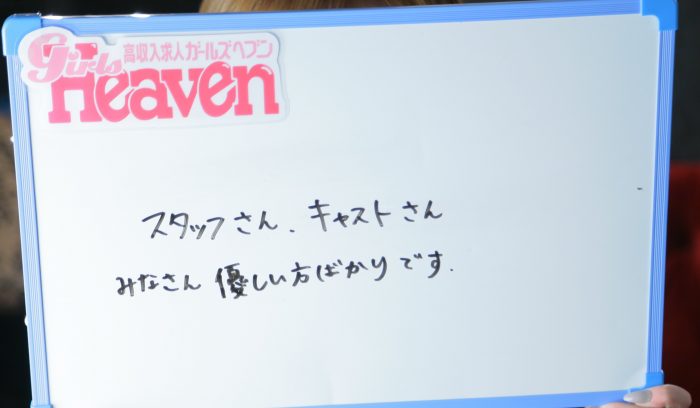 高収入求人ガールズヘブン
Girls
Heaven
スタッフさん、キャストさん
みなさん優しい方ばかりです.